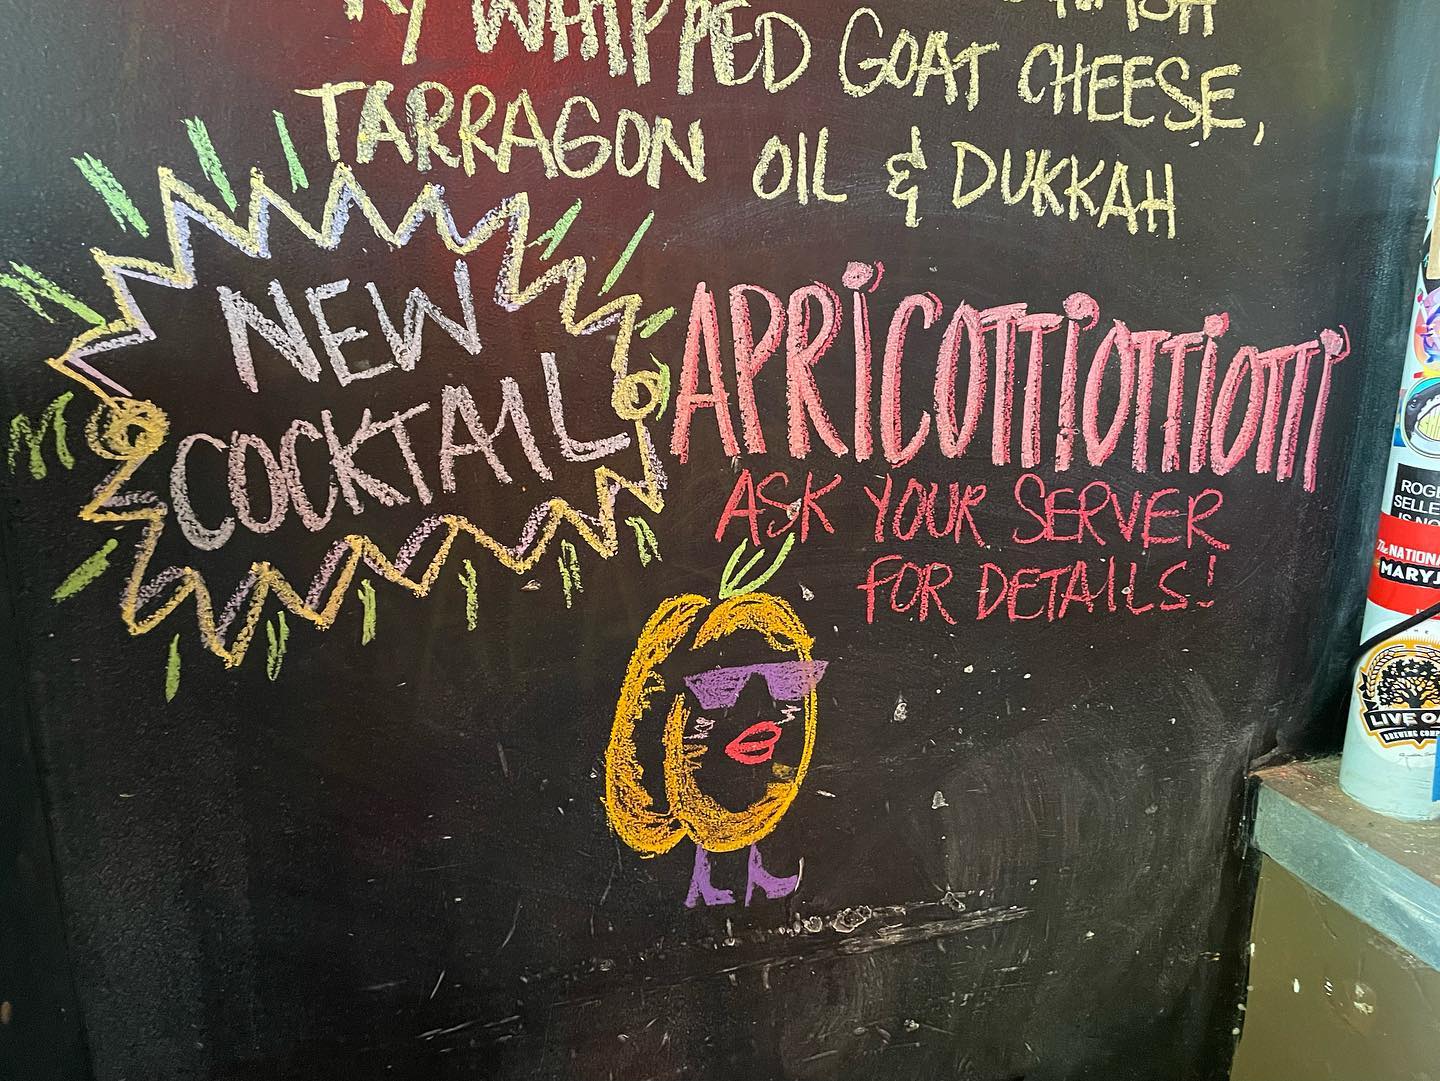 W/ WHIPPED GOAT CHEESE,
TARRAGON OIL & DUKKAH
NEW
COCKTAIL
APRICOTTIOTTIOTTI
ASK YOUR SERVER
FOR DETAILS!
ROGE
SELLE
IS NO
The NATIONA
MARYJ
LIVE OA
BREWING COMP